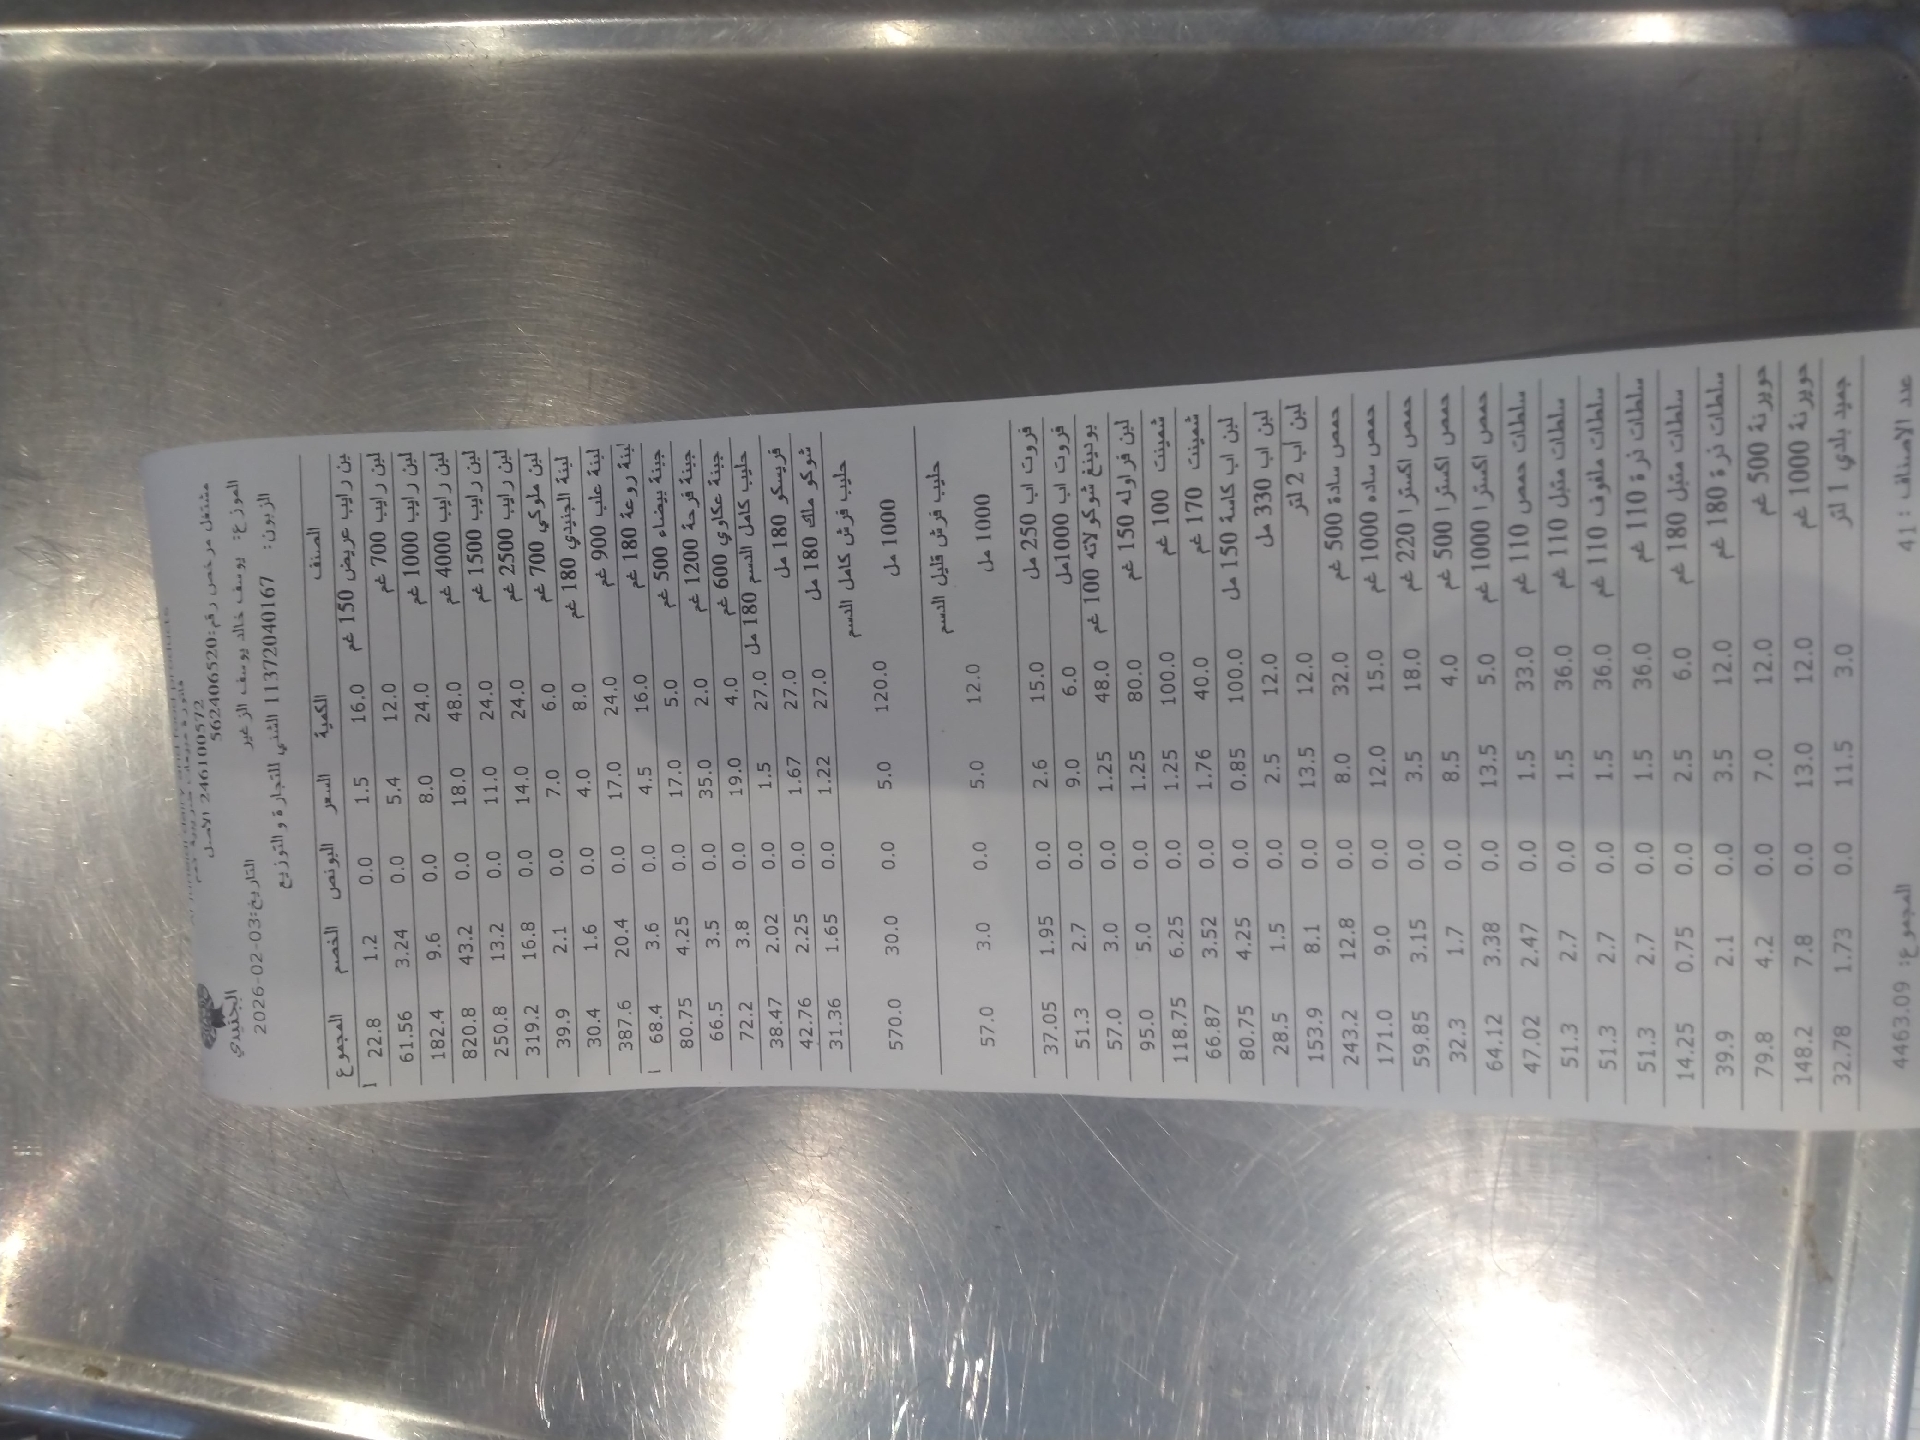 246100572 الأصل
مشتغل مرخص رقم:562406520
الجنيدي
الموزع: يوسف خالد يوسف الزغير
التاريخ:03-02-2026
الزبون: 1137204016​7 الشني للتجارة والتوزيع
الصنف الكمية السعر البونص الخصم المجموع
بن رايب عريض 150 غم 16.0 1.5 0.0 1.2 22.8
لبن رايب 700 غم 12.0 5.4 0.0 3.24 61.56
لبن رايب 1000 غم 24.0 8.0 0.0 9.6 182.4
لبن رايب 4000 غم 48.0 18.0 0.0 43.2 820.8
لبن رايب 1500 غم 24.0 11.0 0.0 13.2 250.8
لبن رايب 2500 غم 24.0 14.0 0.0 16.8 319.2
لبن ملوكي 700 غم 6.0 7.0 0.0 2.1 39.9
لبنة الجنيدي 180 غم 8.0 4.0 0.0 1.6 30.4
لبنة علب 900 غم 24.0 17.0 0.0 20.4 387.6
لبنة روعة 180 غم 16.0 4.5 0.0 3.6 68.4
جبنة بيضاء 500 غم 5.0 17.0 0.0 4.25 80.75
جبنة فرحة 1200 غم 2.0 35.0 0.0 3.5 66.5
جبنة عكاوي 600 غم 4.0 19.0 0.0 3.8 72.2
حليب كامل الدسم 180 مل 27.0 1.5 0.0 2.02 38.47
فريسكو 180 مل 27.0 1.67 0.0 2.25 42.76
شوكو ملك 180 مل 27.0 1.22 0.0 1.65 31.36
حليب فرش كامل الدسم
1000 مل 120.0 5.0 0.0 30.0 570.0
حليب فرش قليل الدسم
1000 مل 12.0 5.0 0.0 3.0 57.0
فروت اب 250 مل 15.0 2.6 0.0 1.95 37.05
فروت اب 1000مل 6.0 9.0 0.0 2.7 51.3
بودينغ شوكولاته 100 غم 48.0 1.25 0.0 3.0 57.0
لبن فراوله 150 غم 80.0 1.25 0.0 5.0 95.0
شمينت 100 غم 100.0 1.25 0.0 6.25 118.75
شمينت 170 غم 40.0 1.76 0.0 3.52 66.87
لبن اب كاسة 150 مل 100.0 0.85 0.0 4.25 80.75
لبن اب 330 مل 12.0 2.5 0.0 1.5 28.5
لبن اب 2 لتر 12.0 13.5 0.0 8.1 153.9
حمص سادة 500 غم 32.0 8.0 0.0 12.8 243.2
حمص ساده 1000 غم 15.0 12.0 0.0 9.0 171.0
حمص اكسترا 220 غم 18.0 3.5 0.0 3.15 59.85
حمص اكسترا 500 غم 4.0 8.5 0.0 1.7 32.3
حمص اكسترا 1000 غم 5.0 13.5 0.0 3.38 64.12
سلطات حمص 110 غم 33.0 1.5 0.0 2.47 47.02
سلطات متبل 110 غم 36.0 1.5 0.0 2.7 51.3
سلطات ملفوف 110 غم 36.0 1.5 0.0 2.7 51.3
سلطات ذرة 110 غم 36.0 1.5 0.0 2.7 51.3
سلطات متبل 180 غم 6.0 2.5 0.0 0.75 14.25
سلطات ذرة 180 غم 12.0 3.5 0.0 2.1 39.9
حوورنة 500 غم 12.0 7.0 0.0 4.2 79.8
حوورنة 1000 غم 12.0 13.0 0.0 7.8 148.2
جميد بلدي 1 لتر 3.0 11.5 0.0 1.73 32.78
عدد الاصناف : 41 المجموع: 4463.09